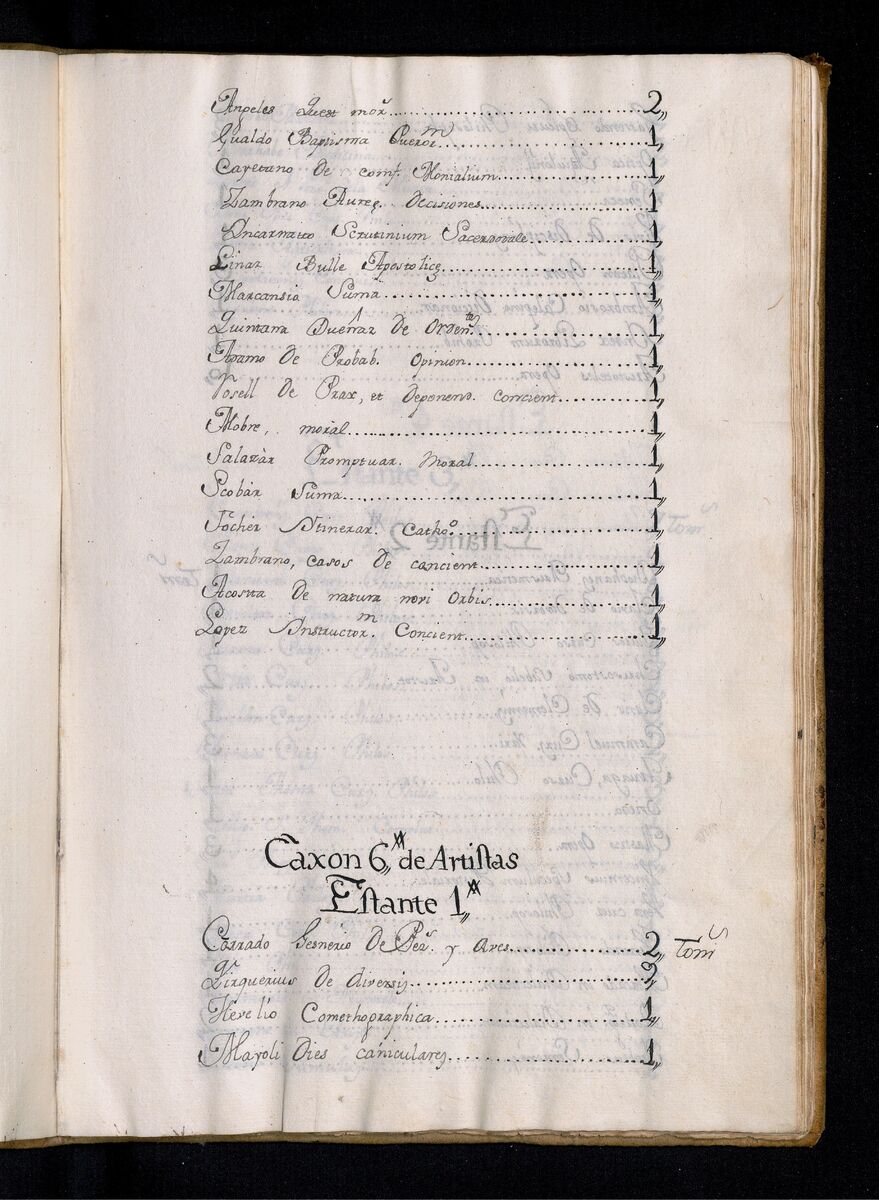 Angeles Quest mor.s .......... 2,,
Gualdo Baptisma Pueror.m .......... 1,,
Cayetano de conf. Monialium .......... 1,,
Zambrano Aureę. Decisiones .......... 1,,
Encarnatio Scrutinium Sacerdotale .......... 1,,
Linar Bulle Apostolicę .......... 1,,
Marcansio Suma .......... 1,,
Quintana Dueñas de Orden.tis .......... 1,,
Adamo de Probab. Opinion .......... 1,,
Tosell de Prax, et deponend. concient .......... 1,,
Mobre, moral .......... 1,,
Salazàr Promptuar. Moral .......... 1,,
Scobàr Suma .......... 1,,
Focher Itinerar. Catho.o .......... 1,,
Zambrano, casos de concient. .......... 1,,
Acosta de natura novi Orbis .......... 1,,
Lopez Instructor.m Concient .......... 1,,
Caxon 6,, de Artistas
Estante 1,,
Corrado Gesnerio de Pez.s y Aves .......... 2,, Tom.s
Qirquerius de diversis .......... 9,,
Hevelio Comethographica .......... 1,,
Mayoli Dies caniculares .......... 1,,